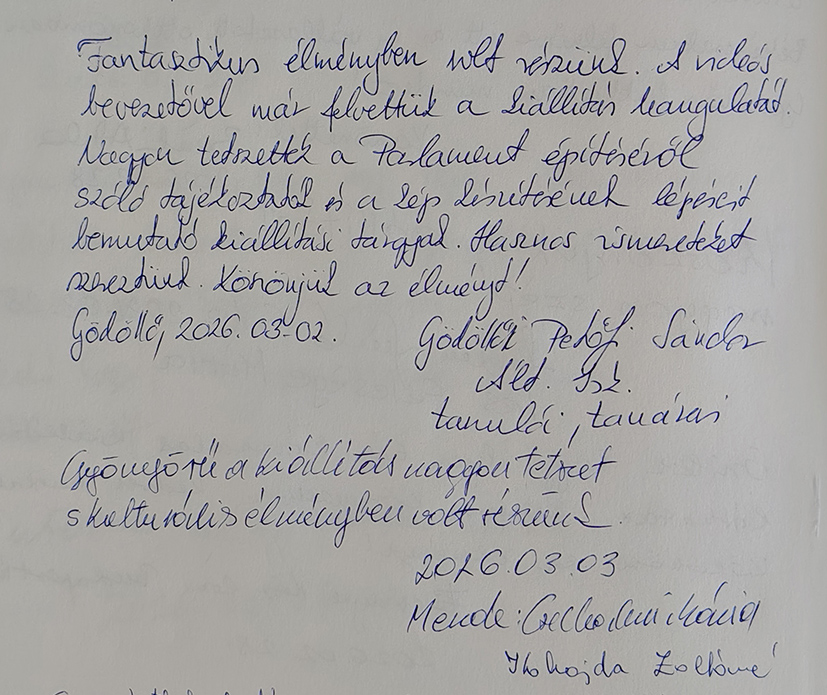 Fantasztikus élményben volt részünk. A videós
bevezetővel már felvettük a kiállítás hangulatát.
Nagyon tetszettek a Parlament építéséről
szóló tájékoztatók és a kép készítésének lépéseit
bemutató kiállítási tárgyak. Hasznos ismereteket
szereztünk. Köszönjük az élményt!
Gödöllő, 2026. 03-02.
Gödöllői Petőfi Sándor
Ált. Isk.
tanulói, tanárai
Gyönyörű a kiállítás nagyon tetszet
s kulturális élményben volt részünk.
2026.03.03
Mende: Mária
Zoltánné